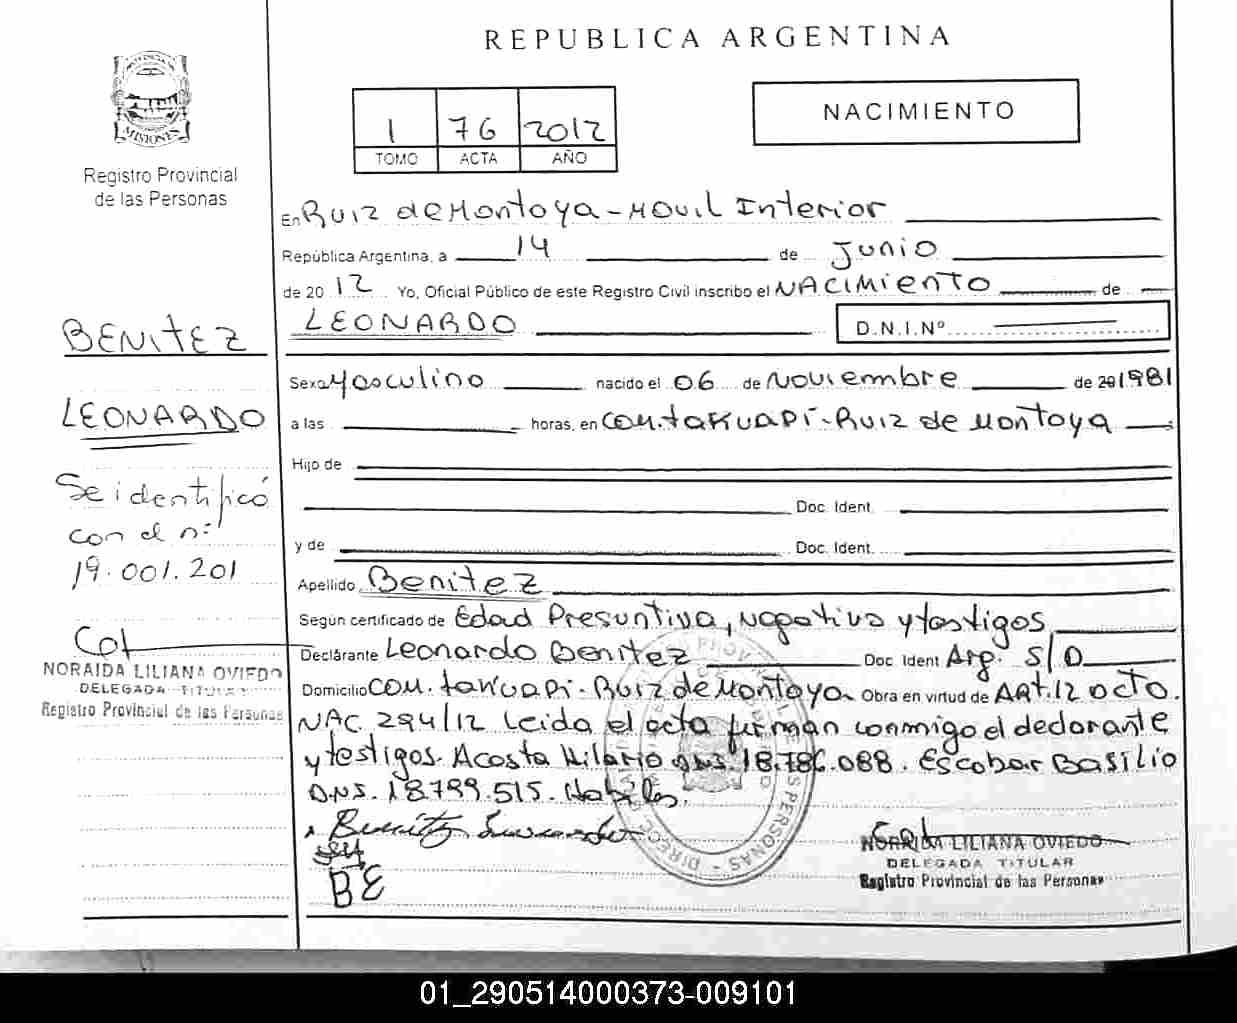 REPUBLICA ARGENTINA
MISIONES
Registro Provincial
de las Personas
1 76 2012
TOMO ACTA AÑO
NACIMIENTO
En Ruiz de Montoya - Movil Interior
República Argentina, a 14 de Junio
de 20 12 Yo, Oficial Público de este Registro Civil inscribo el NACIMIENTO de
LEONARDO D.N.I. Nº
Sexo Masculino nacido el 06 de Noviembre de 201981
a las horas, en Com. takuapí - Ruiz de Montoya
Hijo de
Doc. Ident.
y de Doc. Ident.
Apellido Benitez
Según certificado de Edad Presuntiva, negativa y testigos
Declarante Leonardo Benitez Doc. Ident Arg. S/D
Domicilio Com. takuapi - Ruiz de Montoya Obra en virtud de Art. 12 acta.
NAC. 294/12 Leida el acta firman conmigo el declarante
y testigos. Acosta Hilario DNI. 18.786.088. Escobar Basilio
DNI. 18.799.515. Habiles.
BE
NORAIDA LILIANA OVIEDO
DELEGADA TITULAR
Registro Provincial de las Personas
BENITEZ
LEONARDO
Se identificó
con el nº
19.001.201
NORAIDA LILIANA OVIEDO
DELEGADA TITULAR
Registro Provincial de las Personas
01_290514000373-009101